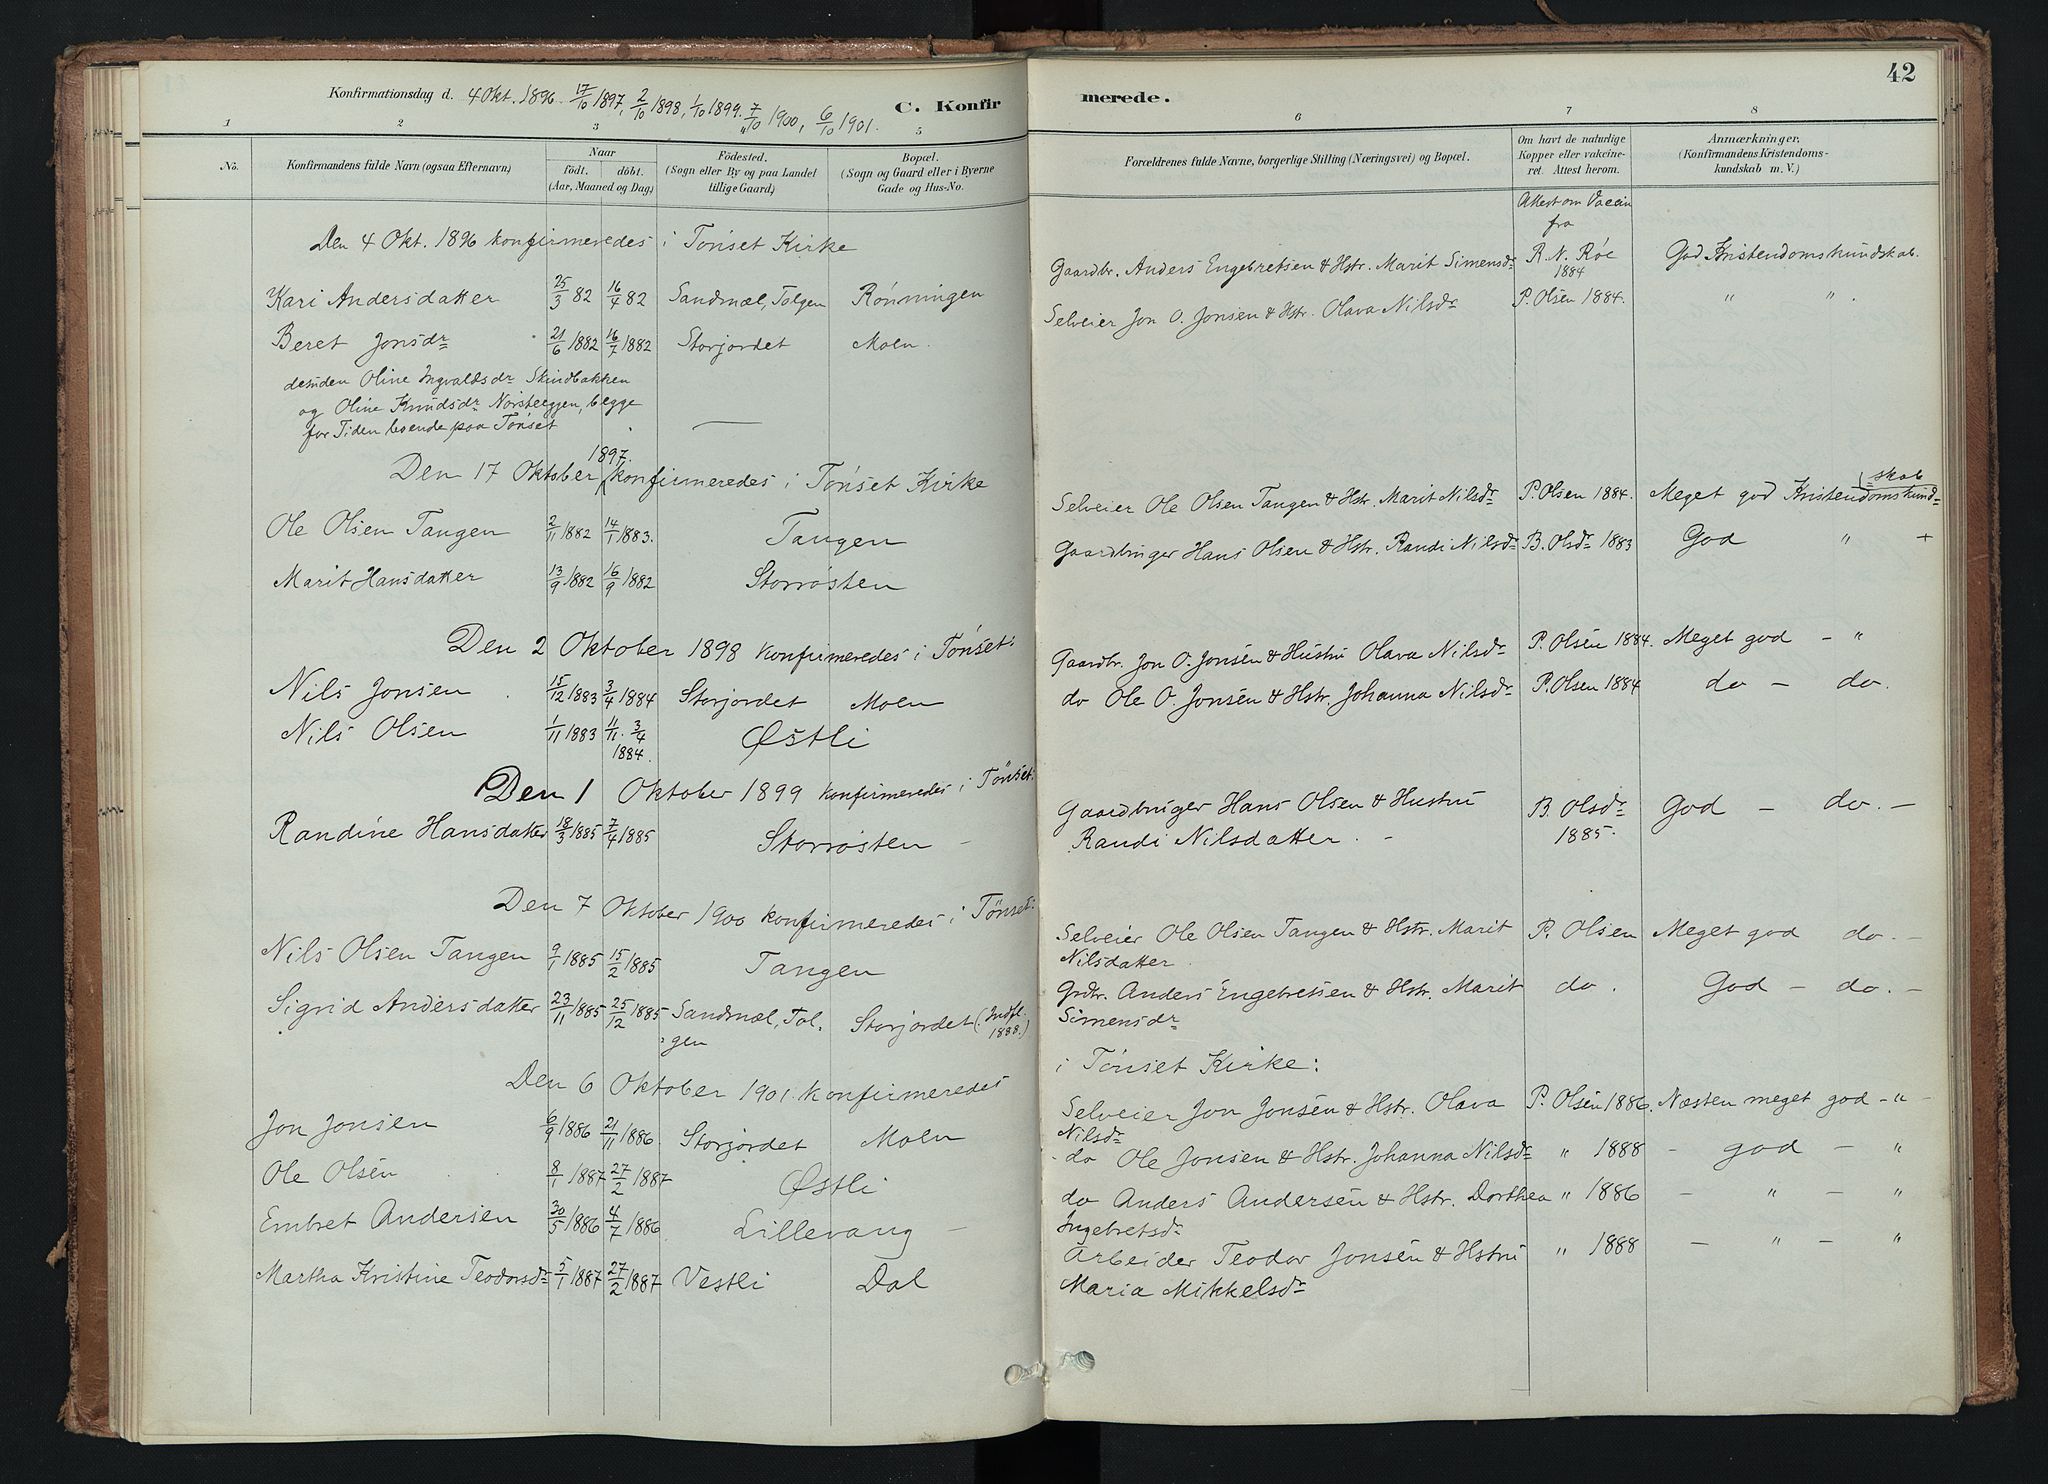 42
Konfirmationsdag d. 4 Okt. 1896. 17/10 1897, 2/10 1898, 1/10 1899. 7/10 1900, 6/10 1901.
C. Konfirmerede.
1 2 3 4 5 6 7 8
No. Konfirmandens fulde Navn (ogsaa Efternavn)
Naar
födt. döbt.
(Aar, Maaned og Dag)
Födested.
(Sogn eller By og paa Landet
tillige Gaard)
Bopæl.
(Sogn og Gaard eller i Byerne
Gade og Hus-No.
Forældrenes fulde Navne, borgerlige Stilling (Næringsvei) og Bopæl.
Om havt de naturlige
Kopper eller vakcine-
ret. Attest herom.
Anmærkninger,
(Konfirmandens Kristendoms-
kundskab m. V.)
Attest om Vaccin
fra
Den 4 Okt. 1896 konfirmeredes i Tönset Kirke
Kari Andersdatter 25/3 82 16/4 82 Sandmæl, Tolgen Rönningen Gaardbr. Anders Engebretsen & Hstr. Marit Simensdr R. N. Røe 1884 God Kristendomskundskab.
Beret Jonsdr 21/6 1882 16/7 1882 Storjordet Moen. Selveier Jon O. Jonsen & Hstr. Olava Nilsdr P. Olsen 1884. " " .
desuden Oline Ingvaldsdr Skindbakken
og Oline Knudsdr Norsteggen, begge
for Tiden boende paa Tönset
Den 17 Oktober 1897. konfirmeredes i Tönset Kirke
Ole Olsen Tangen 2/11 1882 14/1 1883. Tangen Selveier Ole Olsen Tangen & Hstr. Marit Nilsdr P. Olsen 1884. Meget god Kristendomskund-skab
Marit Hansdatter 13/9 1882 16/9 1882 Storrösten Gaardbruger Hans Olsen & Hstr. Randi Nilsdr B. Olsdr 1883 God " +
Den 2 Oktober 1898 konfirmeredes i Tönset:
Nils Jonsen 15/12 1883 3/4 1884 Storjordet Moen Gaardbr. Jon O. Jonsen & Hustru Olava Nilsdr P. Olsen 1884. Meget god - "
Nils Olsen 1/11 1883 11/11. 3/4 1884. Østli do Ole O. Jonsen & Hstr. Johanna Nilsdr P. Olsen 1884 do - do.
Den 1 Oktober 1899 konfirmeredes i Tönset:
Randine Hansdatter 18/3 1885 7/4 1885 Storrösten - Gaardbruger Hans Olsen & Hustru B. Olsdr God - do. -
Randi Nilsdatter. - 1885.
Den 7 Oktober 1900 konfirmeredes i Tönset:
Nils Olsen Tangen 9/1 1885 15/2 1885 Tangen Selveier Ole Olsen Tangen & Hstr. Marit P. Olsen Meget god do. -
Nilsdatter
Sigrid Andersdatter 23/11 1885 25/12 1885 Sandmæl, Tol. Storjordet (Indfl. 1888.) Grdbr. Anders Engebretsen & Hstr. Marit do. God - do. -
gen Simensdr
Den 6 Oktober 1901 konfirmeredes i Tönset Kirke:
Jon Jonsen 6/9 1886 21/11 1886. Storjordet Moen Selveier Jon Jonsen & Hstr. Olava P. Olsen 1886. Næsten meget god - " -
Nilsdr
Ole Olsen 8/1 1887 27/2 1887 Østli do Ole Jonsen & Hstr. Johanna Nilsdr " 1888 - god - "
Embret Andersen 30/5 1886 4/7 1886. Lillevang - do Anders Andersen & Hstr. Dorthea " 1886 - " - "
Ingebretsdr
Martha Kristine Teodorsdr 5/1 1887 27/2 1887 Vestli Dal Arbeider Teodor Jonsen & Hstru " 1888 - " - "
Maria Mikkelsdr